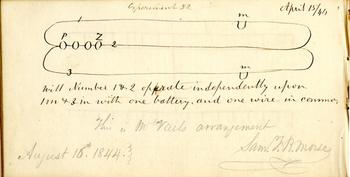 Experiment 32
April 15/44
1 m
P Z 2
3 m
Will Number 1 & 2 operate independently upon
1 m & 3 m with one battery, and one wire in common
This is Mr Vail's arrangement
August 16th. 1844.
Saml. F. B. Morse